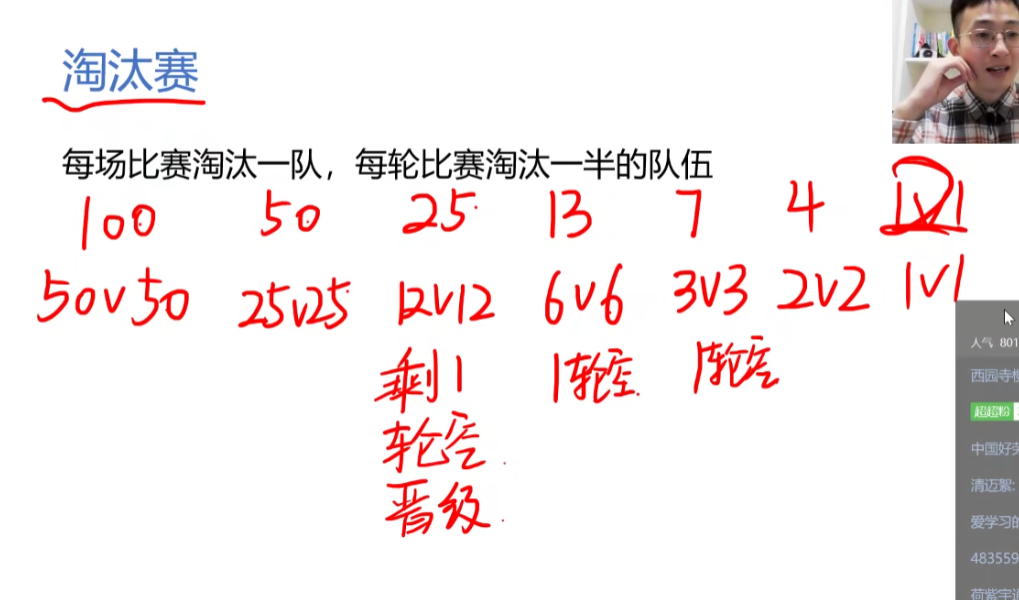 淘汰赛
每场比赛淘汰一队，每轮比赛淘汰一半的队伍
100 50 25 13 7 4 1v1
50v50 25v25 12v12 6v6 3v3 2v2 1v1
剩1 1轮空 1轮空
轮空
晋级
人气 801
西园寺
超超粉
中国好
清迈絮:
爱学习的
483559
荷紫宇